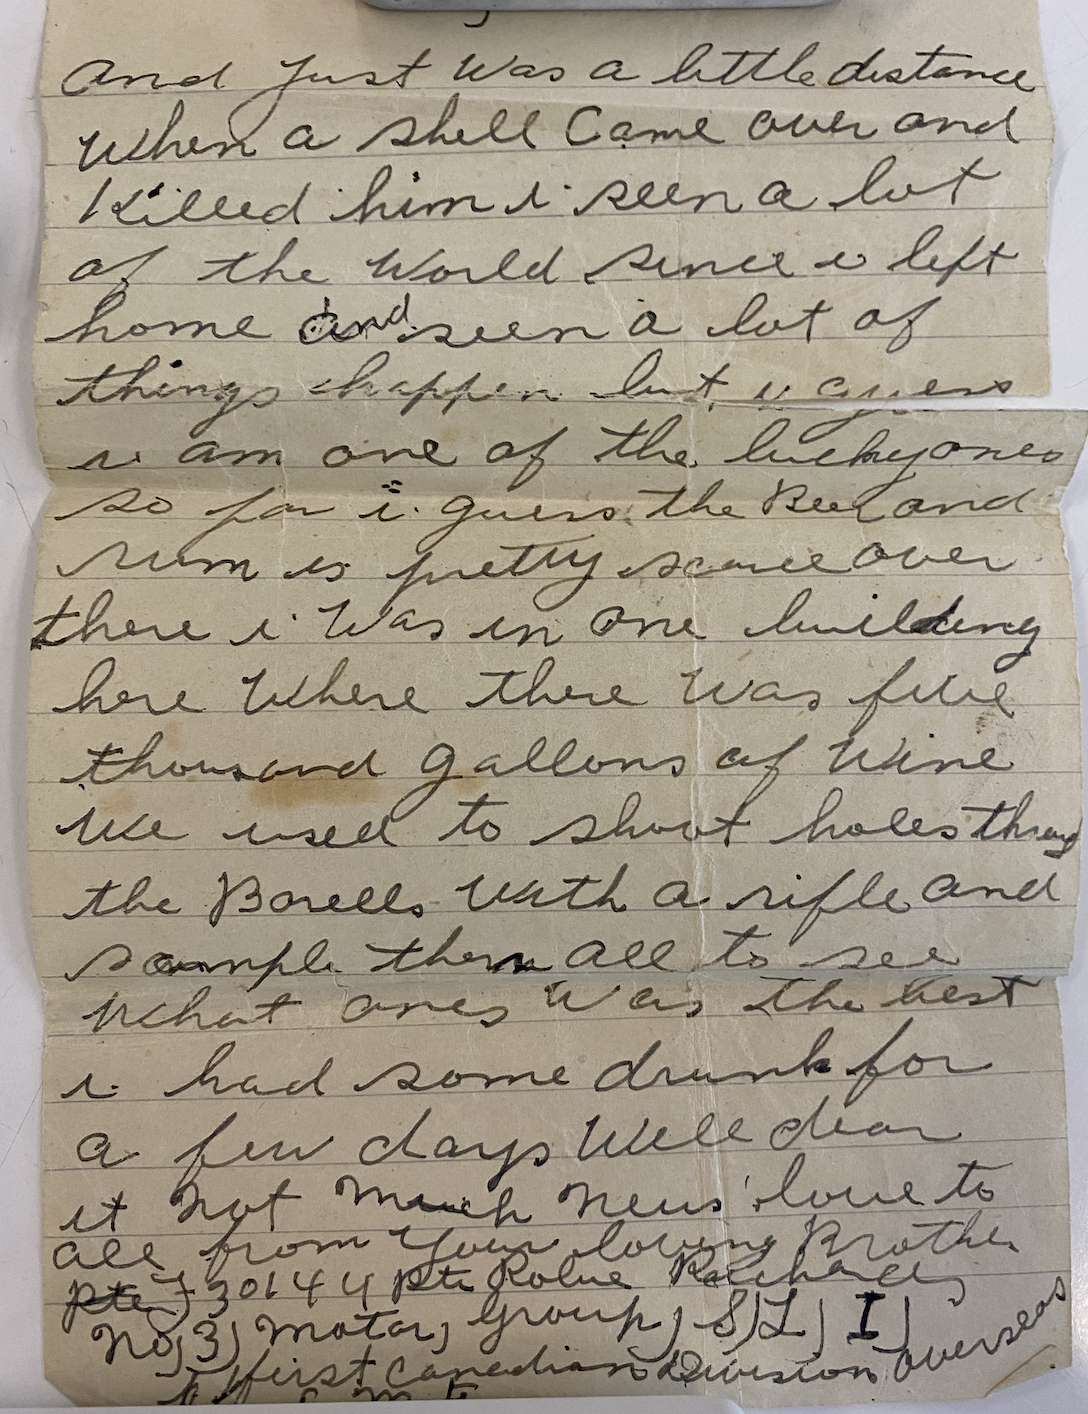 And Just Was a little distance
When a shell Came over and
Killed him i seen a lot
of the World since i left
home and seen a lot of
things happen but i guess
i am one of the lucky ones
so far i guess the Beer and
rum is pretty scarce over
there i Was in one building
here Where there Was five
thousand gallons of Wine
We used to shoot holes through
the Barells With a rifle and
sample them all to see
What ones Was the best
i had some drunk for
a few days Well dear
it not much news love to
all from Your loving Brother
Pte F30144 Pte Richards
No,3, Motar, group, S,L,I,
first Canadian Division overseas